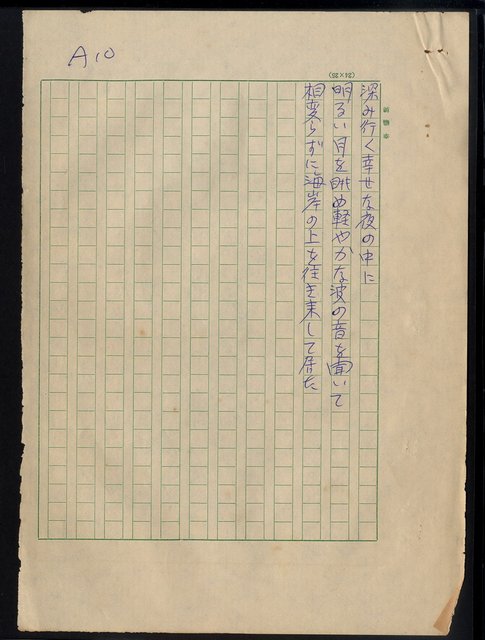 A10
(24×25)
深み行く幸せな夜の中に
明るい月を眺め軽やかな波の音を聞いて
相変らずに海岸の上を往き来して居た